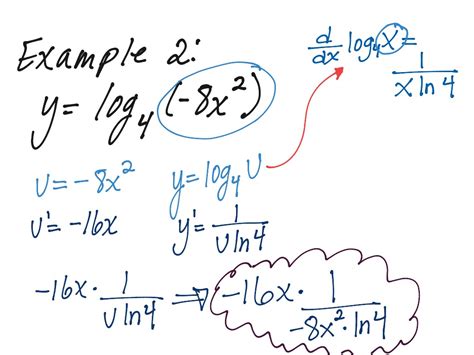 Example 2:
y = log₄(-8x²)
d/dx log₄x = 1/(x ln 4)
U = -8x²
y = log₄U
U' = -16x
y' = 1/(U ln 4)
-16x · 1/(U ln 4) ⇒ -16x · 1/(-8x² · ln 4)